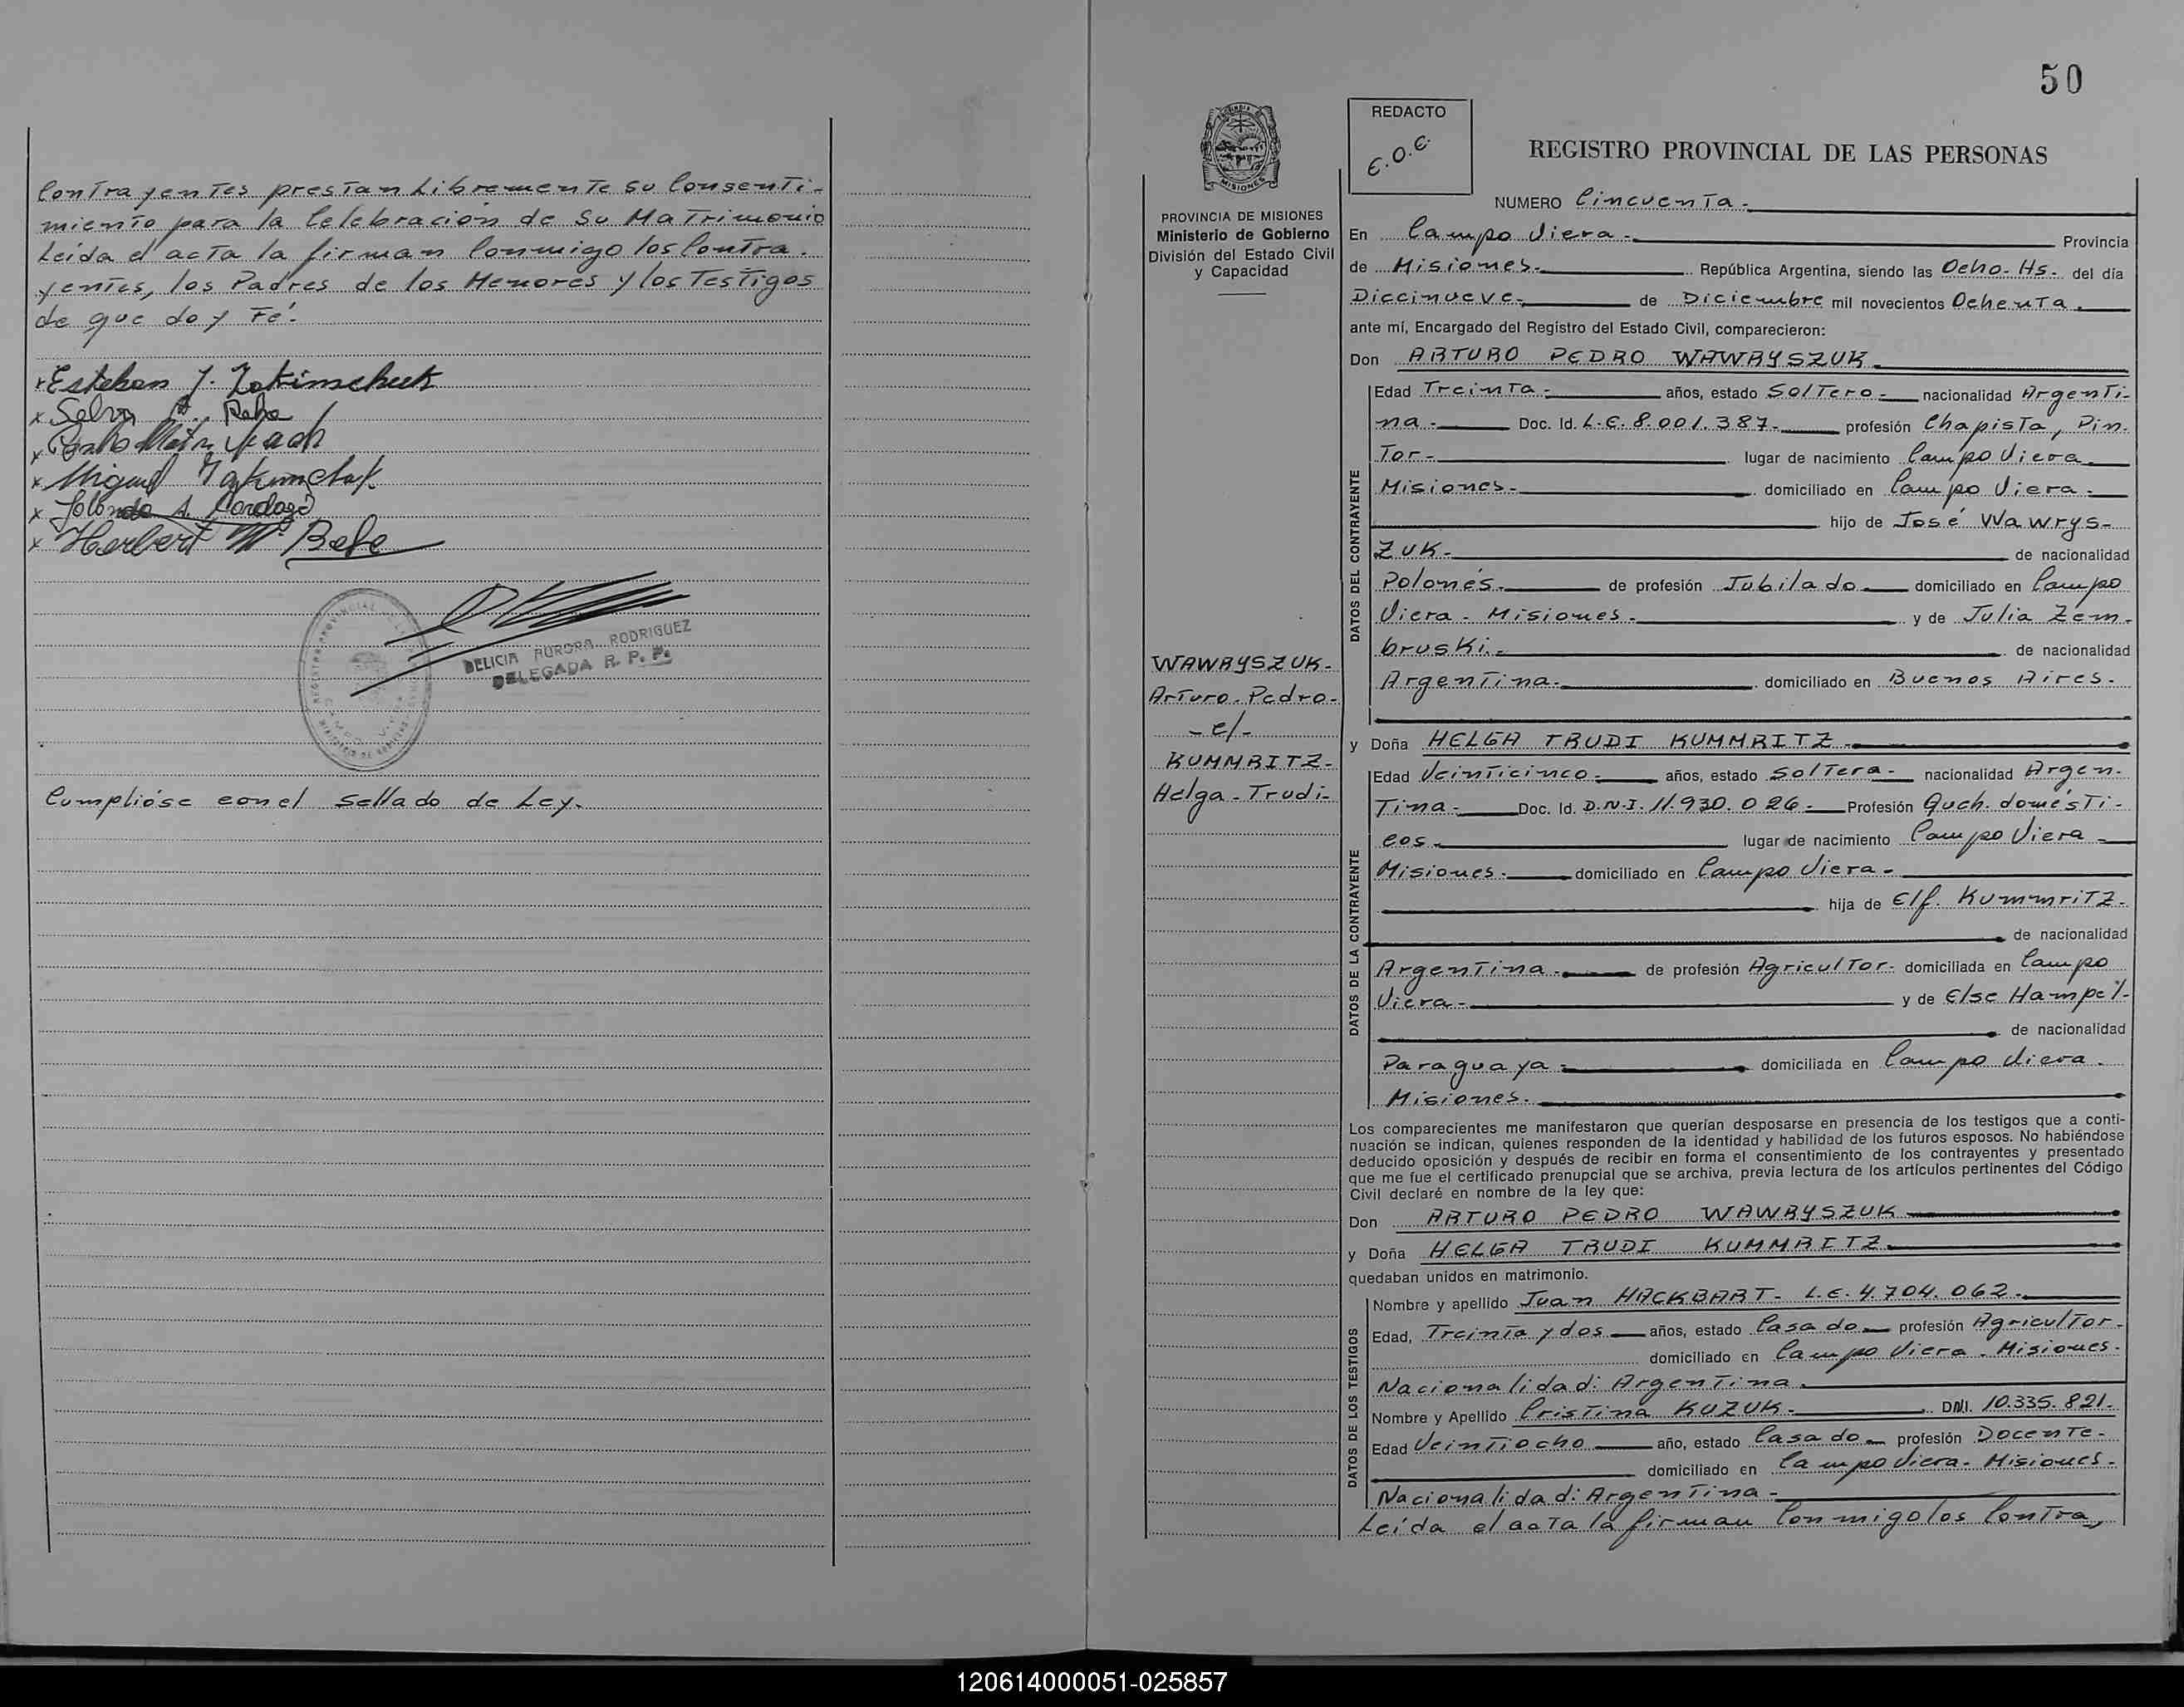 Contrayentes prestan Libremente su Consenti-
miento para la Celebración de Su Matrimonio
Leída el acta la firman Conmigo los Contra-
yentes, los Padres de los Menores y los Testigos
de que doy Fé.-
x Esteban J.
x Selva A.
x
x Miguel
x A. Cardozo
x Herbert
DELICIA AURORA RODRIGUEZ
DELEGADA R. P. P.
Cumplióse con el Sellado de Ley.-
50
REDACTO
E.O.C.
REGISTRO PROVINCIAL DE LAS PERSONAS
PROVINCIA DE MISIONES
Ministerio de Gobierno
División del Estado Civil
y Capacidad
WAWRYSZUK-
Arturo-Pedro-
- c/-
KUMMRITZ-
Helga-Trudi-
NUMERO Cincuenta.-
En Campo Viera.- Provincia
de Misiones.- República Argentina, siendo las Ocho-Hs- del día
Diecinueve.- de Diciembre mil novecientos Ochenta.
ante mí, Encargado del Registro del Estado Civil, comparecieron:
Don ARTURO PEDRO WAWRYSZUK
DATOS DEL CONTRAYENTE
Edad Treinta.- años, estado Soltero- nacionalidad Argenti-
na.- Doc. Id. L.E. 8.001.387- profesión Chapista, Pin-
Tor- lugar de nacimiento Campo Viera
Misiones.- domiciliado en Campo Viera-
hijo de José Wawrys-
zuk.- de nacionalidad
Polonés.- de profesión Jubilado- domiciliado en Campo
Viera - Misiones.- y de Julia Zem-
bruski.- de nacionalidad
Argentina.- domiciliado en Buenos Aires.-
y Doña HELGA TRUDI KUMMRITZ.-
DATOS DE LA CONTRAYENTE
Edad Veinticinco.- años, estado Soltera- nacionalidad Argen-
Tina- Doc. Id. D.N.I. 11.930.026- Profesión Queh. domésti-
cos- lugar de nacimiento Campo Viera-
Misiones.- domiciliado en Campo Viera-
hija de Elf. Kummritz-
de nacionalidad
Argentina.- de profesión Agricultor- domiciliada en Campo
Viera- y de Else Hampel-
de nacionalidad
Paraguaya- domiciliada en Campo Viera.
Misiones.-
Los comparecientes me manifestaron que querían desposarse en presencia de los testigos que a conti-
nuación se indican, quienes responden de la identidad y habilidad de los futuros esposos. No habiéndose
deducido oposición y después de recibir en forma el consentimiento de los contrayentes y presentado
que me fue el certificado prenupcial que se archiva, previa lectura de los artículos pertinentes del Código
Civil declaré en nombre de la ley que:
Don ARTURO PEDRO WAWRYSZUK
y Doña HELGA TRUDI KUMMRITZ.
quedaban unidos en matrimonio.
DATOS DE LOS TESTIGOS
Nombre y apellido Juan HACKBART- L.E. 4.704.062.-
Edad, Treinta y dos años, estado Casado- profesión Agricultor-
domiciliado en Campo Viera - Misiones.
Nacionalidad: Argentina.
Nombre y Apellido Cristina KUZUK.- DNI. 10.335.821-
Edad Veintiocho año, estado Casado- profesión Docente-
domiciliado en Campo Viera- Misiones-
Nacionalidad: Argentina-
Leída el acta la firman Conmigo los Contra,
120614000051-025857